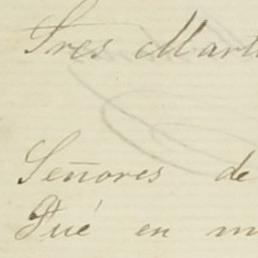 Tres Mart
Señores de
Fué en m